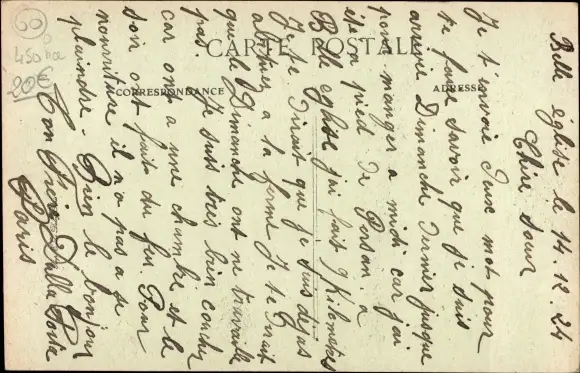 CARTE POSTALE
CORRESPONDANCE
ADRESSE
60
450
20€
Belle église le 14.12.24
Chère sœur
Je t'envoie deux mot pour
te faire savoir que je suis
arrivie Dimanche dernier jusque
pour manger a midi car j'ai
été a pied de Persan. a
Belle eglise j'ai fait 9 Kilometres
Je te dirait que je suis dejas
abituez a la ferme Je te dirait
que le Dimanche ont ne travaille
pas Je suis très bien coucher
car ont a une chambre et le
soir ont fait du feu Pour
nourriture il n'a pas a se
plaindre - Bien le bonjour
Ton Frère Dalla Costa
Paris